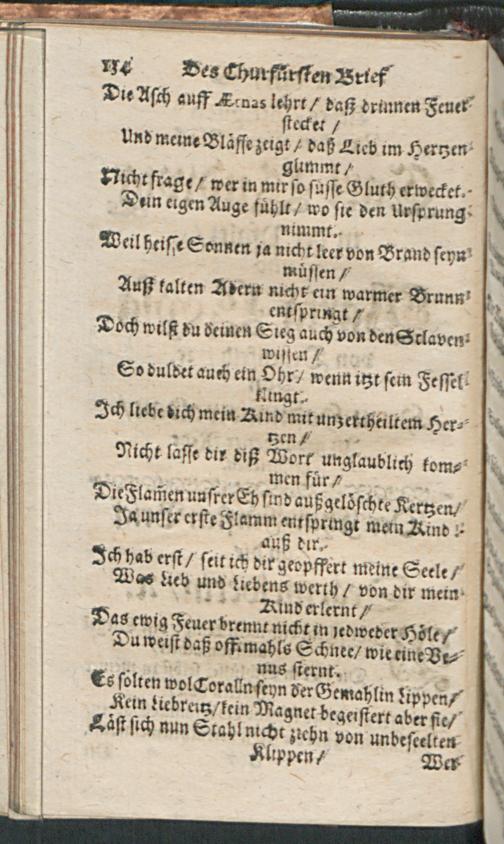 134 Des Churfürsten Brief
Die Asch auff Ætnas lehrt / daß drinnen Feuer
stecket /
Und meine Blässe zeigt / daß Lieb im Hertzen
glimmt /
Nicht frage / wer in mir so süsse Gluth erwecket.
Dein eigen Auge fühlt / wo sie den Ursprung
nimmt.
Weil heisse Sonnen ja nicht leer von Brand seyn
müssen /
Auß kalten Adern nicht ein warmer Brunn
entspringt /
Doch wilst du deinen Sieg auch von den Sclaven
wissen /
So duldet auch ein Ohr / wenn itzt sein Fessel
klingt.
Ich liebe dich mein Kind mit unzertheiltem Her-
tzen /
Nicht lasse dir diß Wort unglaublich kom-
men für /
Die Flam̃en unsrer Eh sind außgelöschte Kertzen /
Ja unser erste Flamm entspringt mein Kind
auß dir.
Ich hab erst / seit ich dir geopffert meine Seele /
Was Lieb und Liebens werth / von dir mein
Kind erlernt /
Das ewig Feuer brennt nicht in jedweder Höle /
Du weist daß offtmahls Schnee / wie eine Ve-
nus sternt.
Es solten wol Coralln seyn der Gemahlin Lippen /
Kein Liebreitz / kein Magnet begeistert aber sie /
Läst sich nun Stahl nicht ziehn von unbeseelten
Klippen /
Wer